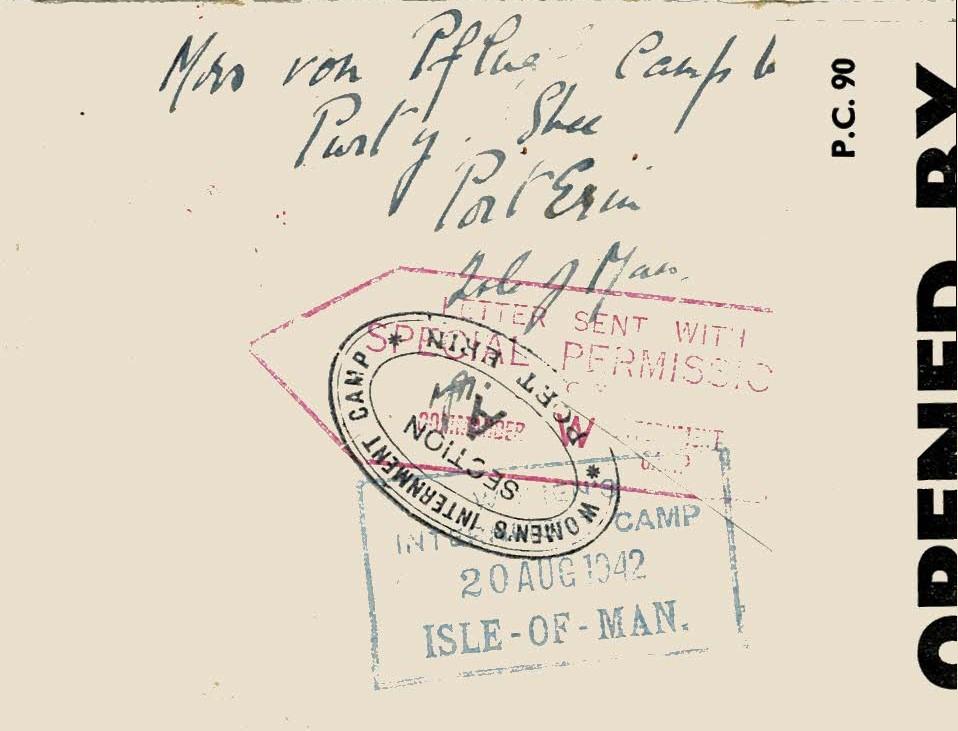 Mrs von Pflug Camp
Port Erin
Isle of Man.
LETTER SENT WITH
SPECIAL PERMISSIO
COMMANDER W
* WOMEN'S INTERNMENT CAMP * PORT ERIN
SECTION
A
CAMP
20 AUG 1942
ISLE-OF-MAN.
P.C. 90
OPENED BY